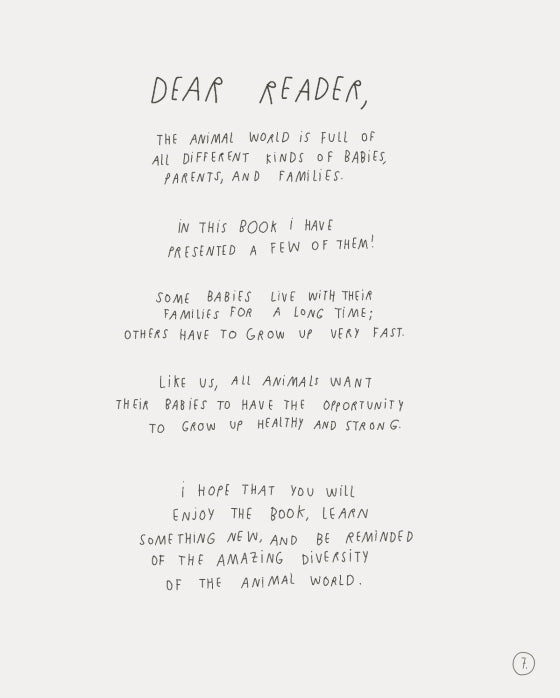 DEAR READER,
THE ANIMAL WORLD iS FULL OF
ALL DiFFERENT KiNDS OF BABiES,
PARENTS, AND FAMiLiES.
iN THiS BOOK i HAVE
PRESENTED A FEW OF THEM!
SOME BABiES LiVE WiTH THEiR
FAMiLiES FOR A LONG TiME;
OTHERS HAVE TO GROW UP VERY FAST.
LiKE US, ALL ANiMALS WANT
THEiR BABiES TO HAVE THE OPPORTUNiTY
TO GROW UP HEALTHY AND STRONG.
i HOPE THAT YOU WiLL
ENJOY THE BOOK, LEARN
SOMETHiNG NEW, AND BE REMiNDED
OF THE AMAZiNG DiVERSiTY
OF THE ANiMAL WORLD.
7.